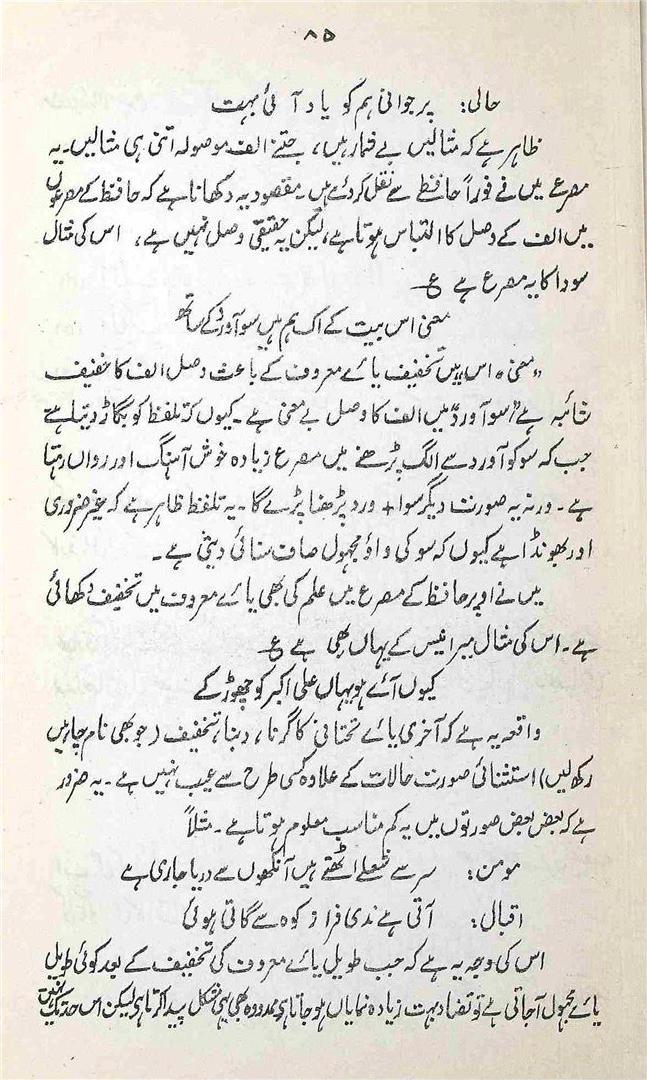 ۸۵
حالی: پر جوانی ہم کو یاد آئی بہت
ظاہر ہے کہ مثالیں بے شمار ہیں، جتنے الف موصولہ اتنی ہی مثالیں۔ یہ
مصرعے میں نے فوراً حافظے سے نقل کر دئے ہیں۔ مقصود یہ دکھانا ہے کہ حافظ کے مصرعوں
میں الف کے وصل کا التباس ہوتا ہے، لیکن یہ حقیقی وصل نہیں ہے، اس کی مثال
سودا کا یہ مصرع ہے ع
معنی اس بیت کے اک ہم ہیں سو آورد کے ساتھ
"معنی" اس" میں تخفیف یائے معروف کے باعث وصل الف کا خفیف
شائبہ ہے "سو آورد" میں الف کا وصل بے معنی ہے۔ کیوں کہ تلفظ کو بگاڑ دیتا ہے
جب کہ سو کو آورد سے الگ پڑھنے میں مصرع زیادہ خوش آہنگ اور رواں رہتا
ہے۔ ورنہ یہ صورت دیگر سوا + ورد پڑھنا پڑے گا۔ یہ تلفظ ظاہر ہے کہ غیر ضروری
اور بھونڈا ہے کیوں کہ سو کی واؤ مجہول صاف سنائی دیتی ہے۔
میں نے اوپر حافظ کے مصرع میں علم کی بھی یائے معروف میں تخفیف دکھائی
ہے۔ اس کی مثال میر انیس کے یہاں بھی ہے ع
کیوں آئے ہو یہاں علی اکبر کو چھوڑ کے
واقعہ یہ ہے کہ آخری یائے تحتانی کا گرنا، دبنا، تخفیف (جو بھی نام چاہیں
رکھ لیں) استثنائی صورت حالات کے علاوہ کسی طرح سے عیب نہیں ہے۔ یہ ضرور
ہے کہ بعض بعض صورتوں میں یہ کم مناسب معلوم ہوتا ہے۔ مثلاً
مومن: سر سے شعلے اٹھتے ہیں آنکھوں سے دریا جاری ہے
اقبال: آتی ہے ندی فراز کوہ سے گاتی ہوئی
اس کی وجہ یہ ہے کہ جب طویل یائے معروف کی تخفیف کے بعد کوئی طویل
یائے مجہول آجاتی ہے تو تضاد بہت زیادہ نمایاں ہو جاتا ہے ممدودہ بھی یہی مشکل پیدا کرتا ہے لیکن اس حد تک نہیں